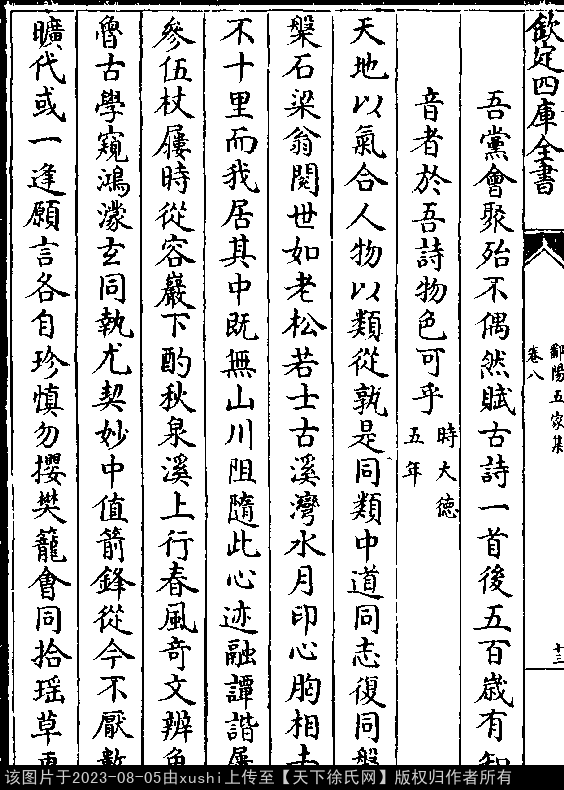 欽定四庫全書
鄱陽五家集
卷八
十三
吾黨會聚殆不偶然賦古詩一首後五百歲有知
音者於吾詩物色可乎時大德五年
天地以氣合人物以類從孰是同類中道同志復同盤
槃石梁翁閱世如老松若士古溪灣水月印心胸相去
不十里而我居其中既無山川阻隨此心迹融譚諧屢
參伍杖屨時從容巖下酌秋泉溪上行春風奇文辨魚
魯古學窺鴻濛玄同執尤契妙中值箭鋒從今不厭數
曠代或一逢願言各自珍慎勿攖樊籠會同拾瑶草
该图片于2023-08-05由xushi上传至【天下徐氏网】版权归作者所有